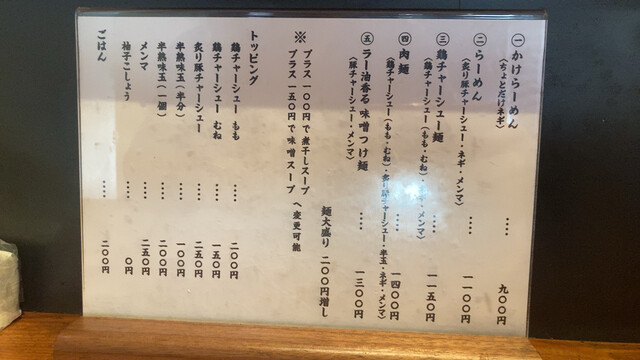 ㊀ かけらーめん ‥‥ 九〇〇円
（ちょとだけネギ）
㊁ らーめん ‥‥ 一一〇〇円
（炙り豚チャーシュー・ネギ・メンマ）
㊂ 鶏チャーシュー麺 ‥‥ 一一五〇円
（鶏チャーシュー（もも・むね）・ネギ・メンマ）
㊃ 肉麺 ‥‥ 一四〇〇円
（鶏チャーシュー（もも・むね）・炙り豚チャーシュー・半玉・ネギ・メンマ）
㊄ ラー油香る味噌つけ麺 ‥‥ 一三〇〇円
（豚チャーシュー・メンマ）
麺大盛り 二〇〇円増し
※ プラス一〇〇円で煮干しスープ
プラス一五〇円で味噌スープ へ変更可能
トッピング
鶏チャーシュー もも ‥‥ 二〇〇円
鶏チャーシュー むね ‥‥ 一五〇円
炙り豚チャーシュー ‥‥ 二五〇円
半熟味玉（半分） ‥‥ 一〇〇円
半熟味玉（一個） ‥‥ 二〇〇円
メンマ ‥‥ 二五〇円
柚子こしょう ‥‥ 〇円
ごはん ‥‥ 二〇〇円